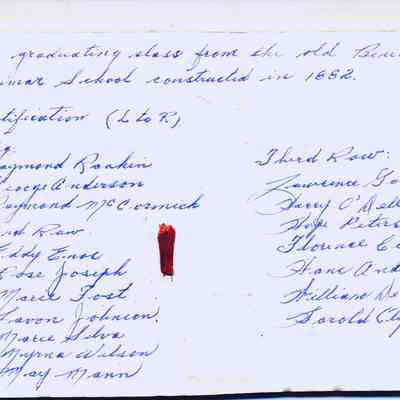 graduating class from the old Beni
School constructed in 1882.
tification (L to R)
aymond Rankin
eorge Anderson
aymond McCormick
nd Row.
Eddy Enos
Rose Joseph
Marie Fost
Lavon Johnson
Marie Silva
Myrna Wilson
May Mann
Third Row:
Lawrence Go
Harry O'Dell
Hope Peters
Florence
Hans And
William De